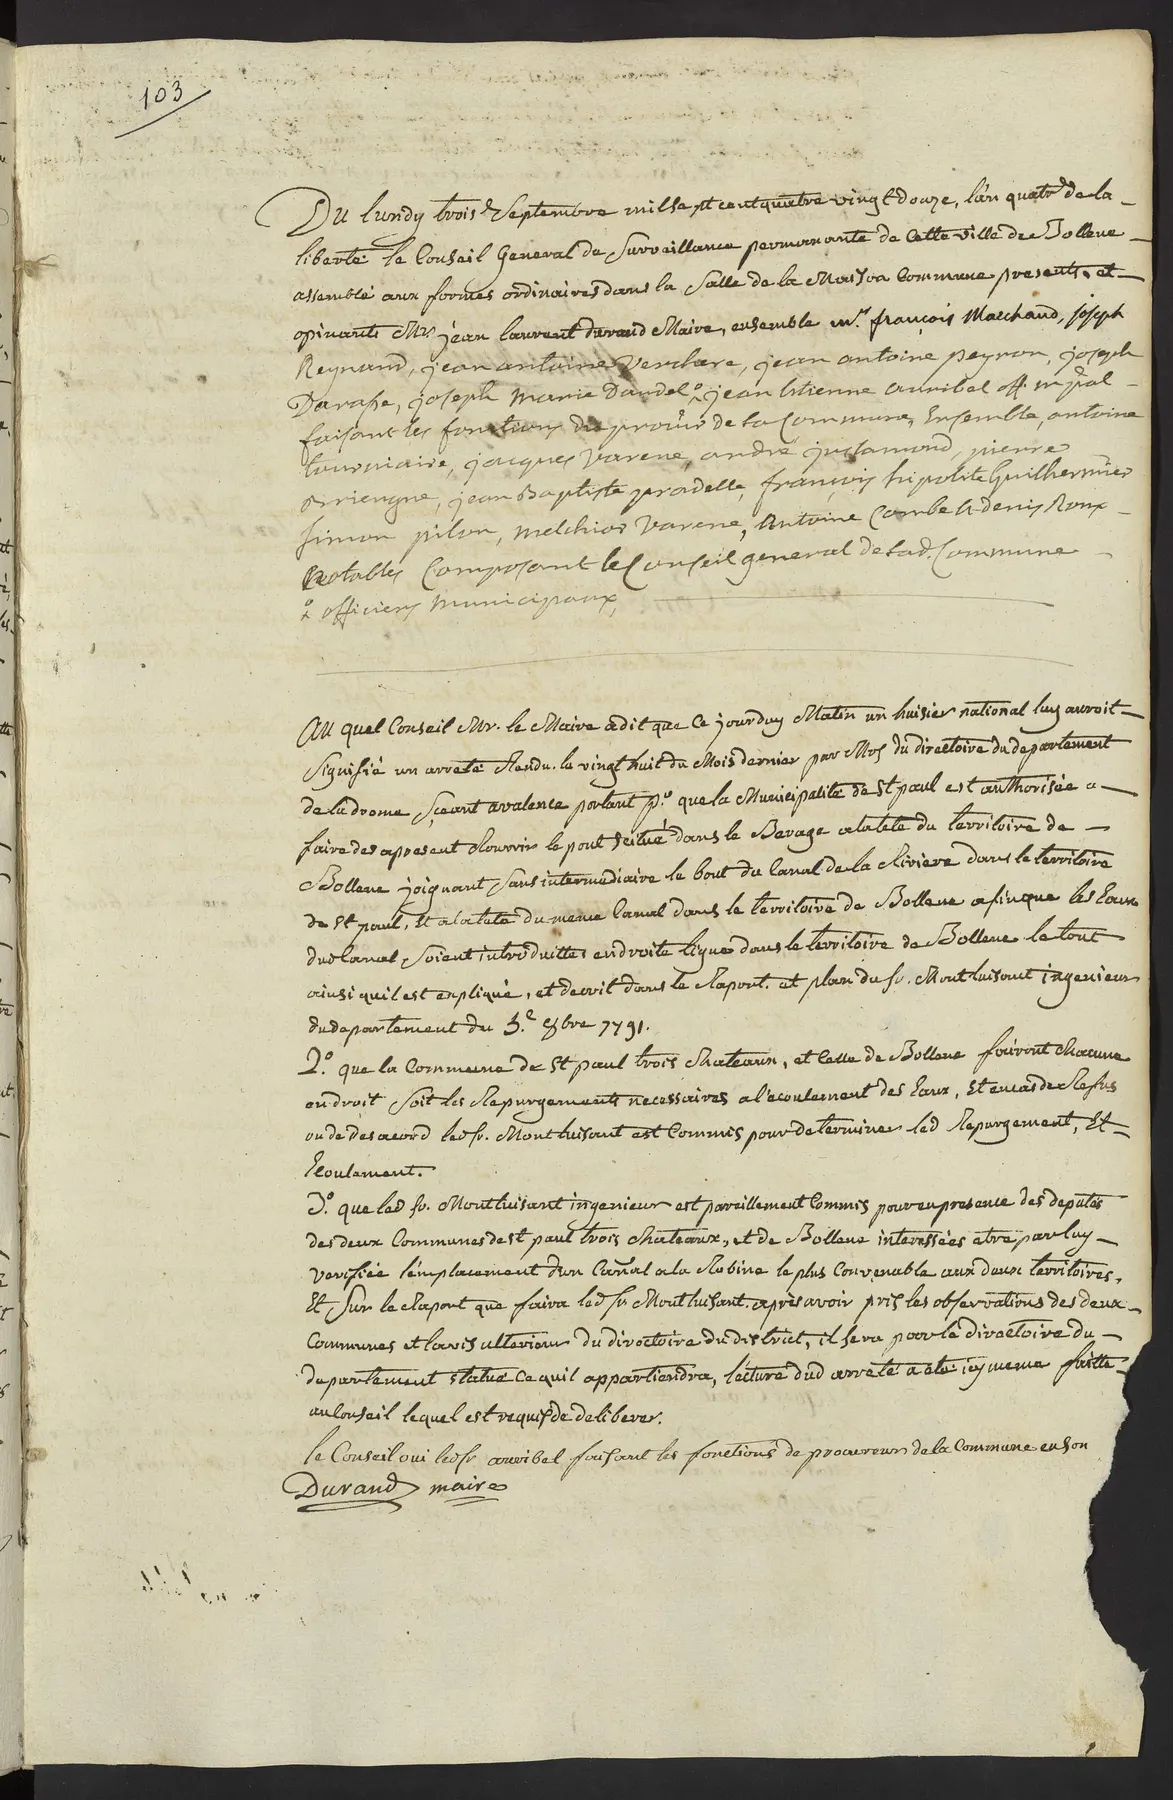 103
Du lundy trois.e Septembre mille sept cent quatre vingt douze, l'an quatr.e de la
liberté le Conseil General de Surveillance permanante de Cette ville de Bollene
assemblé aux formes ordinaires dans la Salle de la Maison Commune presents et
opinants Mr. jean laurent durand Maire, ensemble mr. françois Marchand, joseph
Reynaud, jean antoine Verchere, jean antoine peyron, joseph
Darasse, joseph Marie Dandel jean Etienne auribel off. m.pal
faisant les fonctions du procur de la Commune, Ensemble, antoine
tourniaire, jacques Varene, andré justamond, pierre
Brieugne, jean Baptiste pradelle, françois hipolite Guilhermier
simon pilon, melchior Varene, Antoine Combe & denis Roux
Notables Composant le Conseil general de lad. Commune
officiers municipaux
Au quel Conseil Mr. le Maire a dit que Ce jourduy Matin un huisier national luy auroit
signifié un arrete Rendu le vingt huit du Mois dernier par Mrs du directoire du departement
de la drome Sçeant a valence portant p.o que la Municipalité de St paul est authorisée a
faire des apresent Rouvrir le pont scitué dans le Bevage a la tete du territoire de
Bollene joignant sans intermediaire le bout du Canal de la Riviere dans le territoire
de St paul, Et a la tete du meme Canal dans le territoire de Bollene afin que les Eaux
dud Canal, Soient introduittes en droite ligne dans le territoire de Bollene le tout
ainsi qu'il est expliqué, et decrit dans le Raport et plan du sr. Montluisant ingenieur
du departement du 3.e 8bre 1791.
2.o que la Commune de St paul trois Chateaux, et Celle de Bollene fairont chacune
en droit soit les Repurgements necessaires a l'ecoulement des Eaux, Et en cas de Refus
ou de desacord led sr. Montluisant est Commis pour determiner led Repurgement, Et
Ecoulement.
3.o que led sr. Montluisant ingenieur est pareillement Commis pour en presence des deputés
des deux Communes de St paul trois Chateaux, et de Bollene interessées etre par luy
verifiée l'emplacement d'un Canal a la Robine le plus Convenable aux deux territoires,
Et sur le Raport que faira led sr Montluisant, après avoir pris les observations des deux
Communes et l'avis ulterieur du directoire du district, il sera par le directoire du
departement statué Ce qu'il appartiendra, lecture dud arreté a eté icy meme faitte
au Conseil lequel est requis de deliberer.
le Conseil oui led sr auribel faisant les fonctions de procureur de la Commune en son
Durand maire